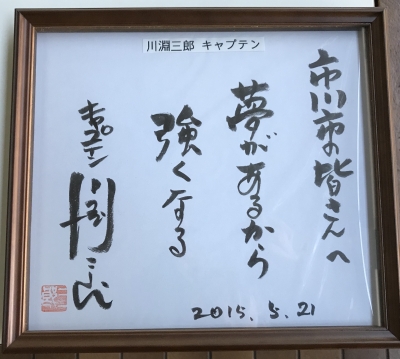 川淵三郎 キャプテン
市川市の皆さんへ
夢があるから
強くなる
キャプテン
川淵三郎
2015.5.21